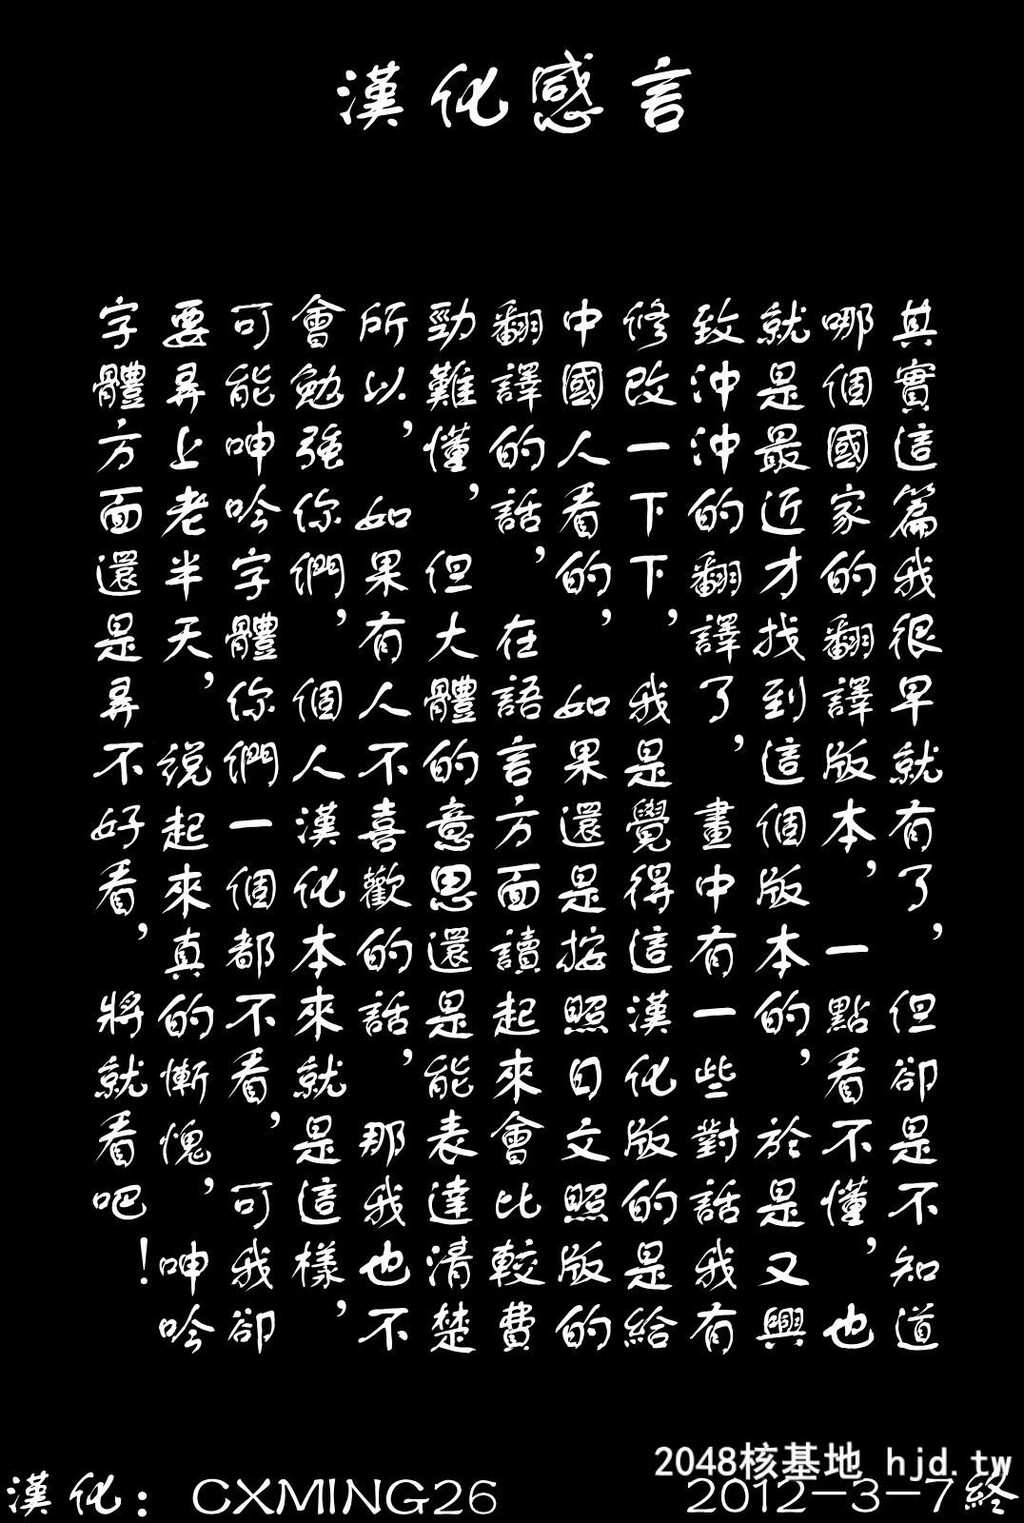 漢化感言
其實這篇我很早就有了，但卻是不知道
哪個國家的翻譯版本，一點看不懂，也
就是最近才找到這個版本的，於是又興
致沖沖的翻譯了，畫中有一些對話我有
修改一下下，我是覺得這漢化版的是給
中國人看的，如果還是按照日文照版的
翻譯的話，在語言方面讀起來會比較費
勁難懂，但大體的意思還是能表達清楚
所以，如果有人不喜歡的話，那我也不
會勉強你們，個人漢化本來就是這樣，
可能呻吟字體你們一個都不看，可我卻
要弄上老半天，说起來真的慚愧，呻吟
字體方面還是弄不好看，將就看吧！
2048核基地 hjd.tw
漢化：CXMING26
2012-3-7終